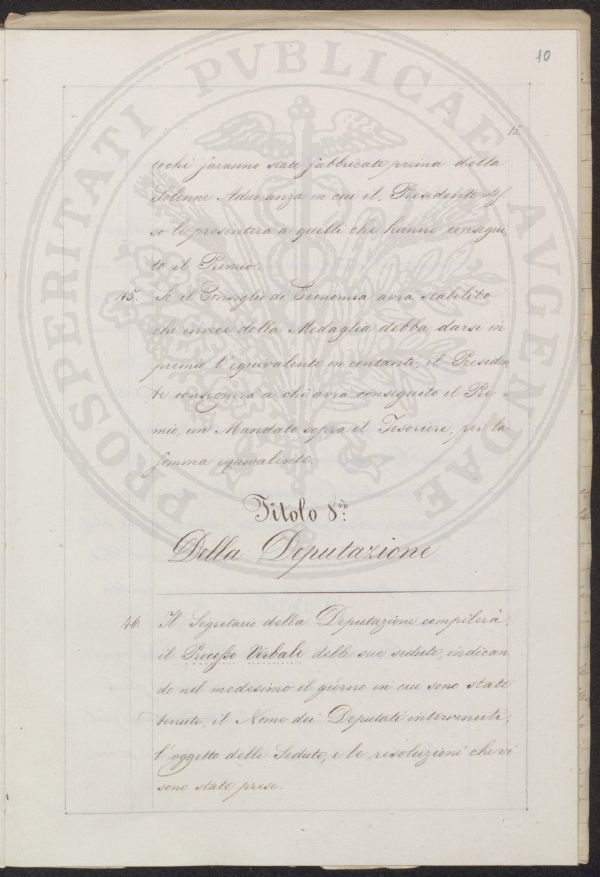 10
15.
tochè saranno state fabbricate prima della
Solenne Adunanza in cui il Presidente stes-
so le presenterà a quelli che hanno consegui-
to il Premio.
45. Se il Consiglio di Economia avrà stabilito
che invece della Medaglia debba darsi in
premio l'equivalente in contanti, il Presiden-
te consegnerà a chi avrà conseguito il Pre-
mio, un Mandato sopra il Tesoriere, per la
somma equivalente.
Titolo 8.vo
Della Deputazione
46. Il Segretario della Deputazione compilerà
il Processo Verbale delle sue sedute, indican-
do nel medesimo il giorno in cui sono state
tenute, il Nome dei Deputati intervenuti,
l'oggetto delle Sedute, e le risoluzioni che vi
sono state prese.
PROSPERITATI PVBLICAE AVGENDAE